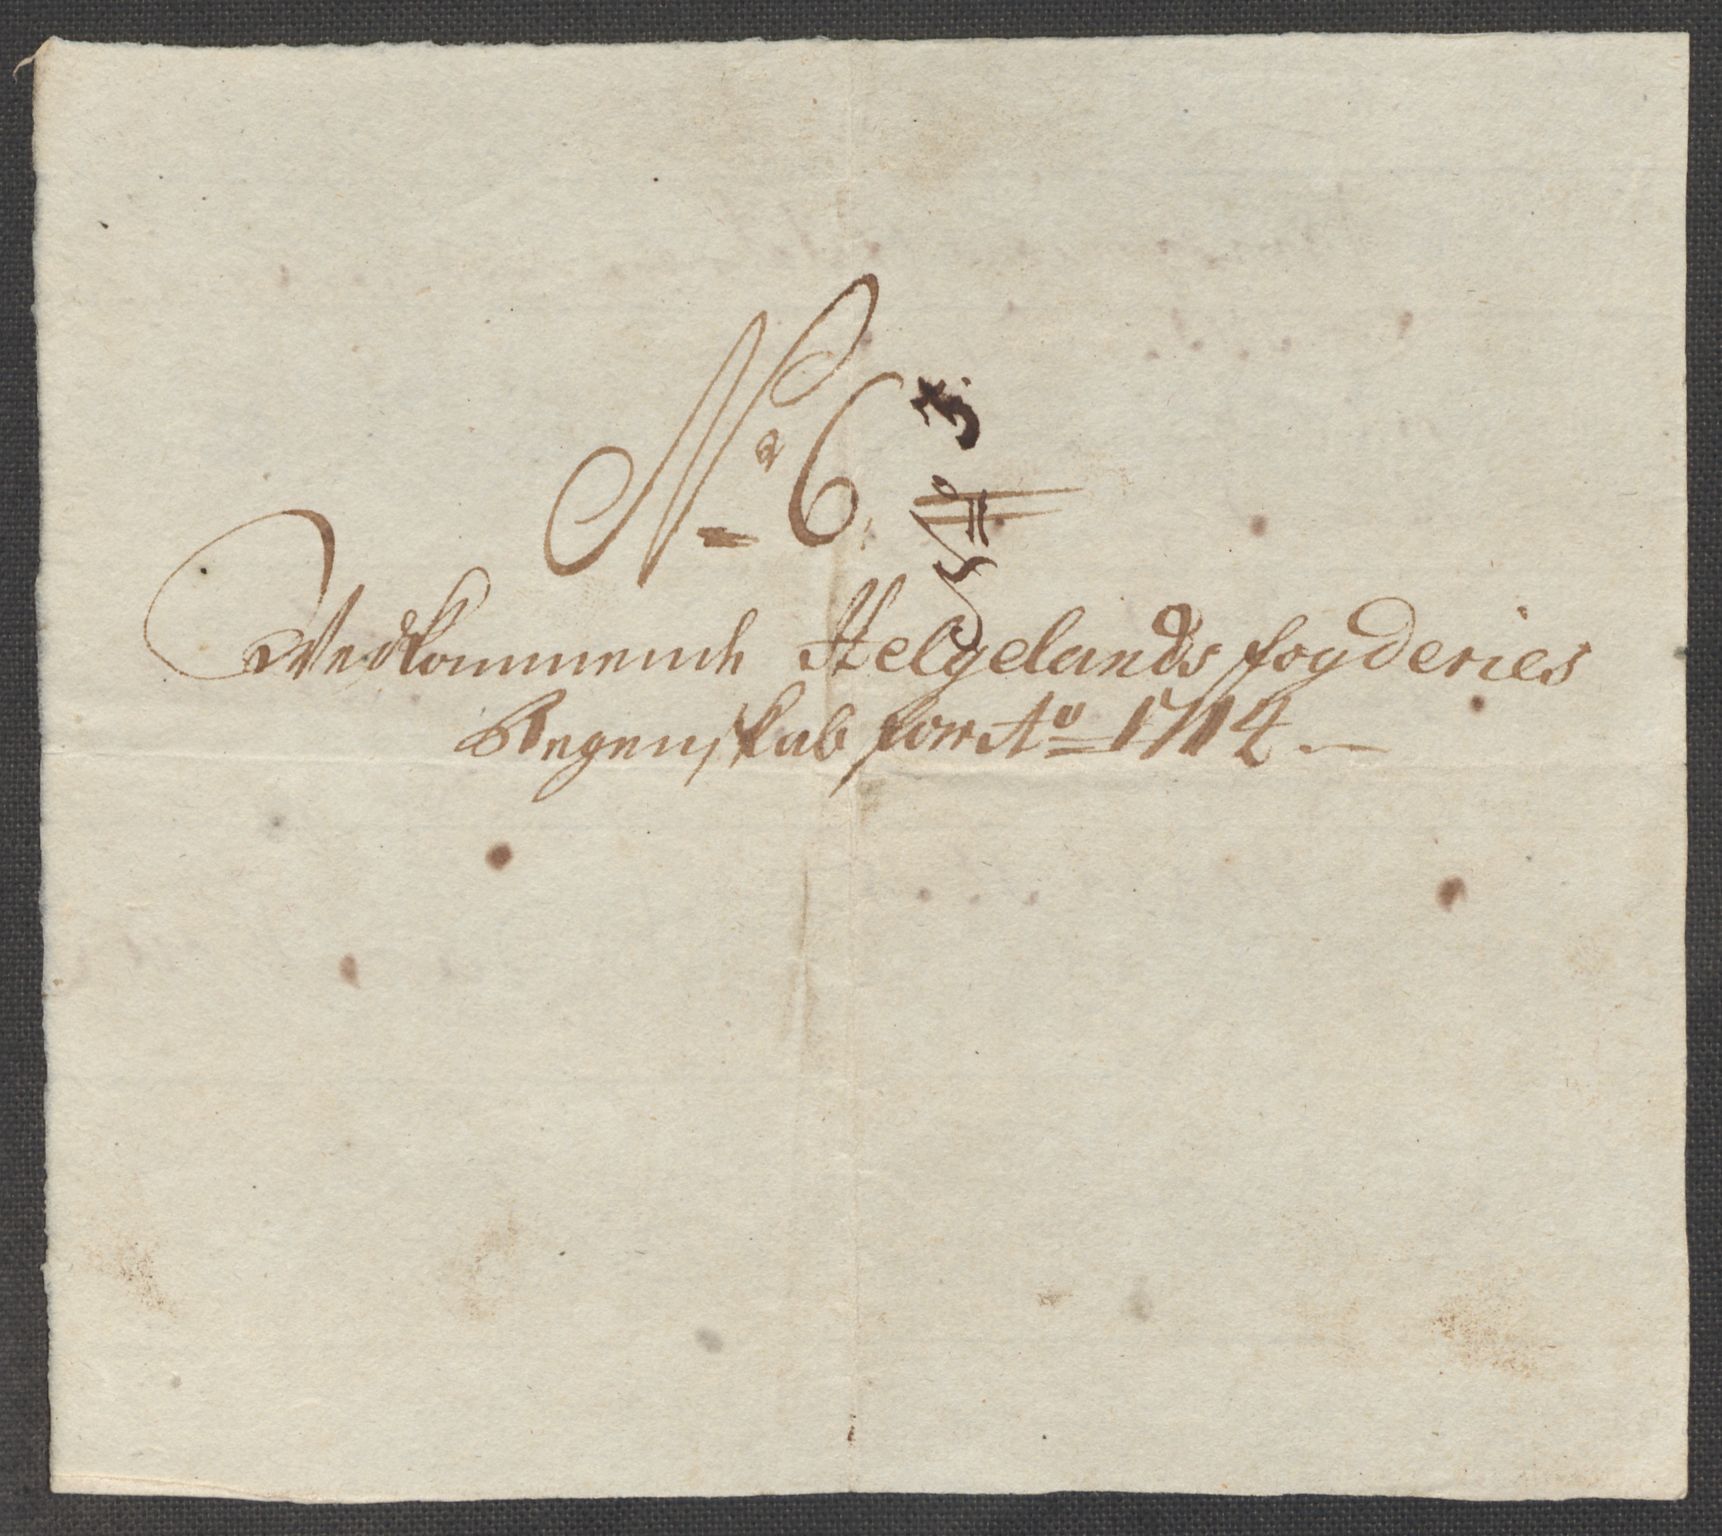 No 6.
Vedkommende Helgelands fogderies
Regenskab for Ao 1714.